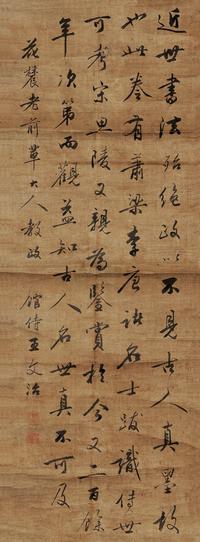 近世書法殆絕政以不見古人真墨故
也此卷有蕭梁李唐諸名士跋識傳世
可考宋思陵又親為鑒賞於今又二百餘
年次第而觀益知古人名世真不可及
花農老前草大人教政
館侍王文治